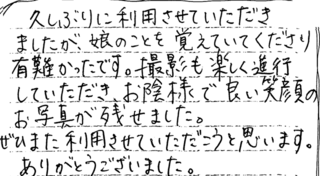 久しぶりに利用させていただき
ましたが、娘のことを覚えていてくださり
有難かったです。撮影も楽しく進行
していただき、お陰様で良い笑顔の
お写真が残せました。
ぜひまた利用させていただこうと思います。
ありがとうございました。